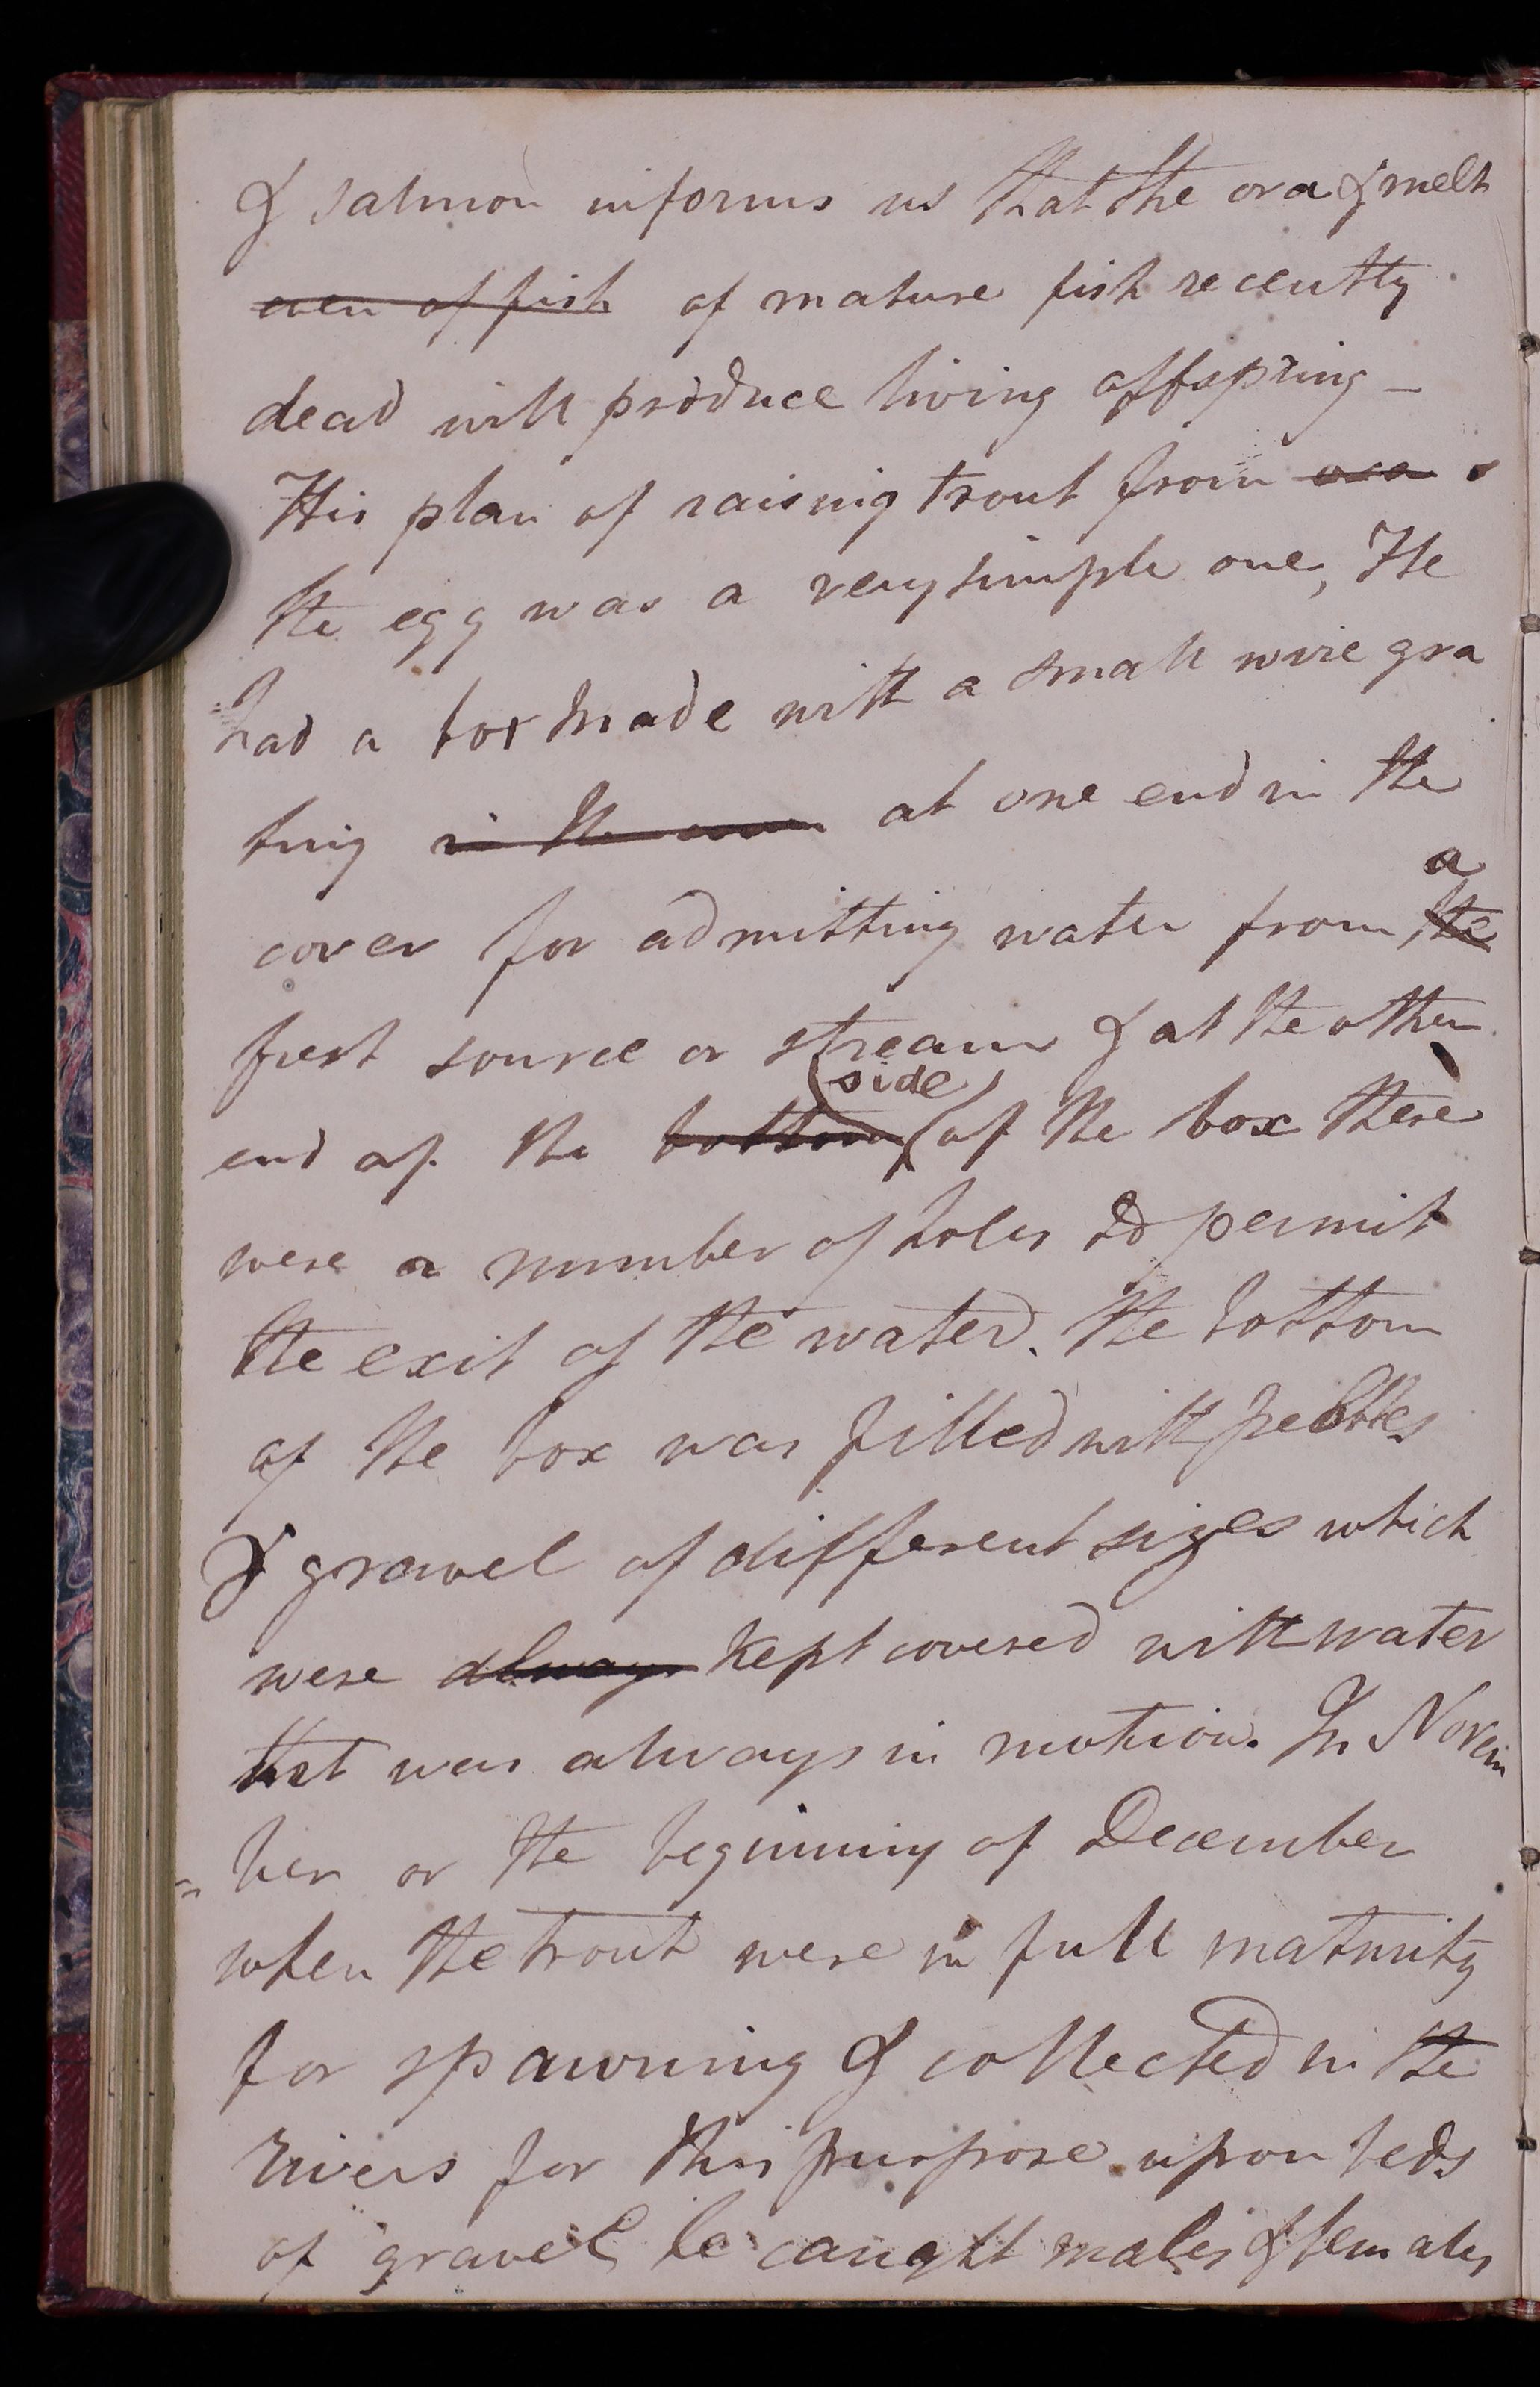 & salmon informs us that the ova & melt
even of fish of mature fish recently
dead will produce living offspring –
His plan of raising trout from ova
the egg was a very simple one, He
had a box made with a small wire gra
ting in the cover at one end in the
a
cover for admitting water from the
fresh source or stream & at the other
side
end of the bottom (of the box there
were a number of holes to permit
the exit of the water. The bottom
of the box was filled with pebbles
& gravel of different sizes which
were always kept covered with water
that was always in motion. In Novem
= ber or the beginning of December
when the trout were in full maturity
for spawning & collected in the
rivers for this purpose upon beds
of gravel he caught males & females